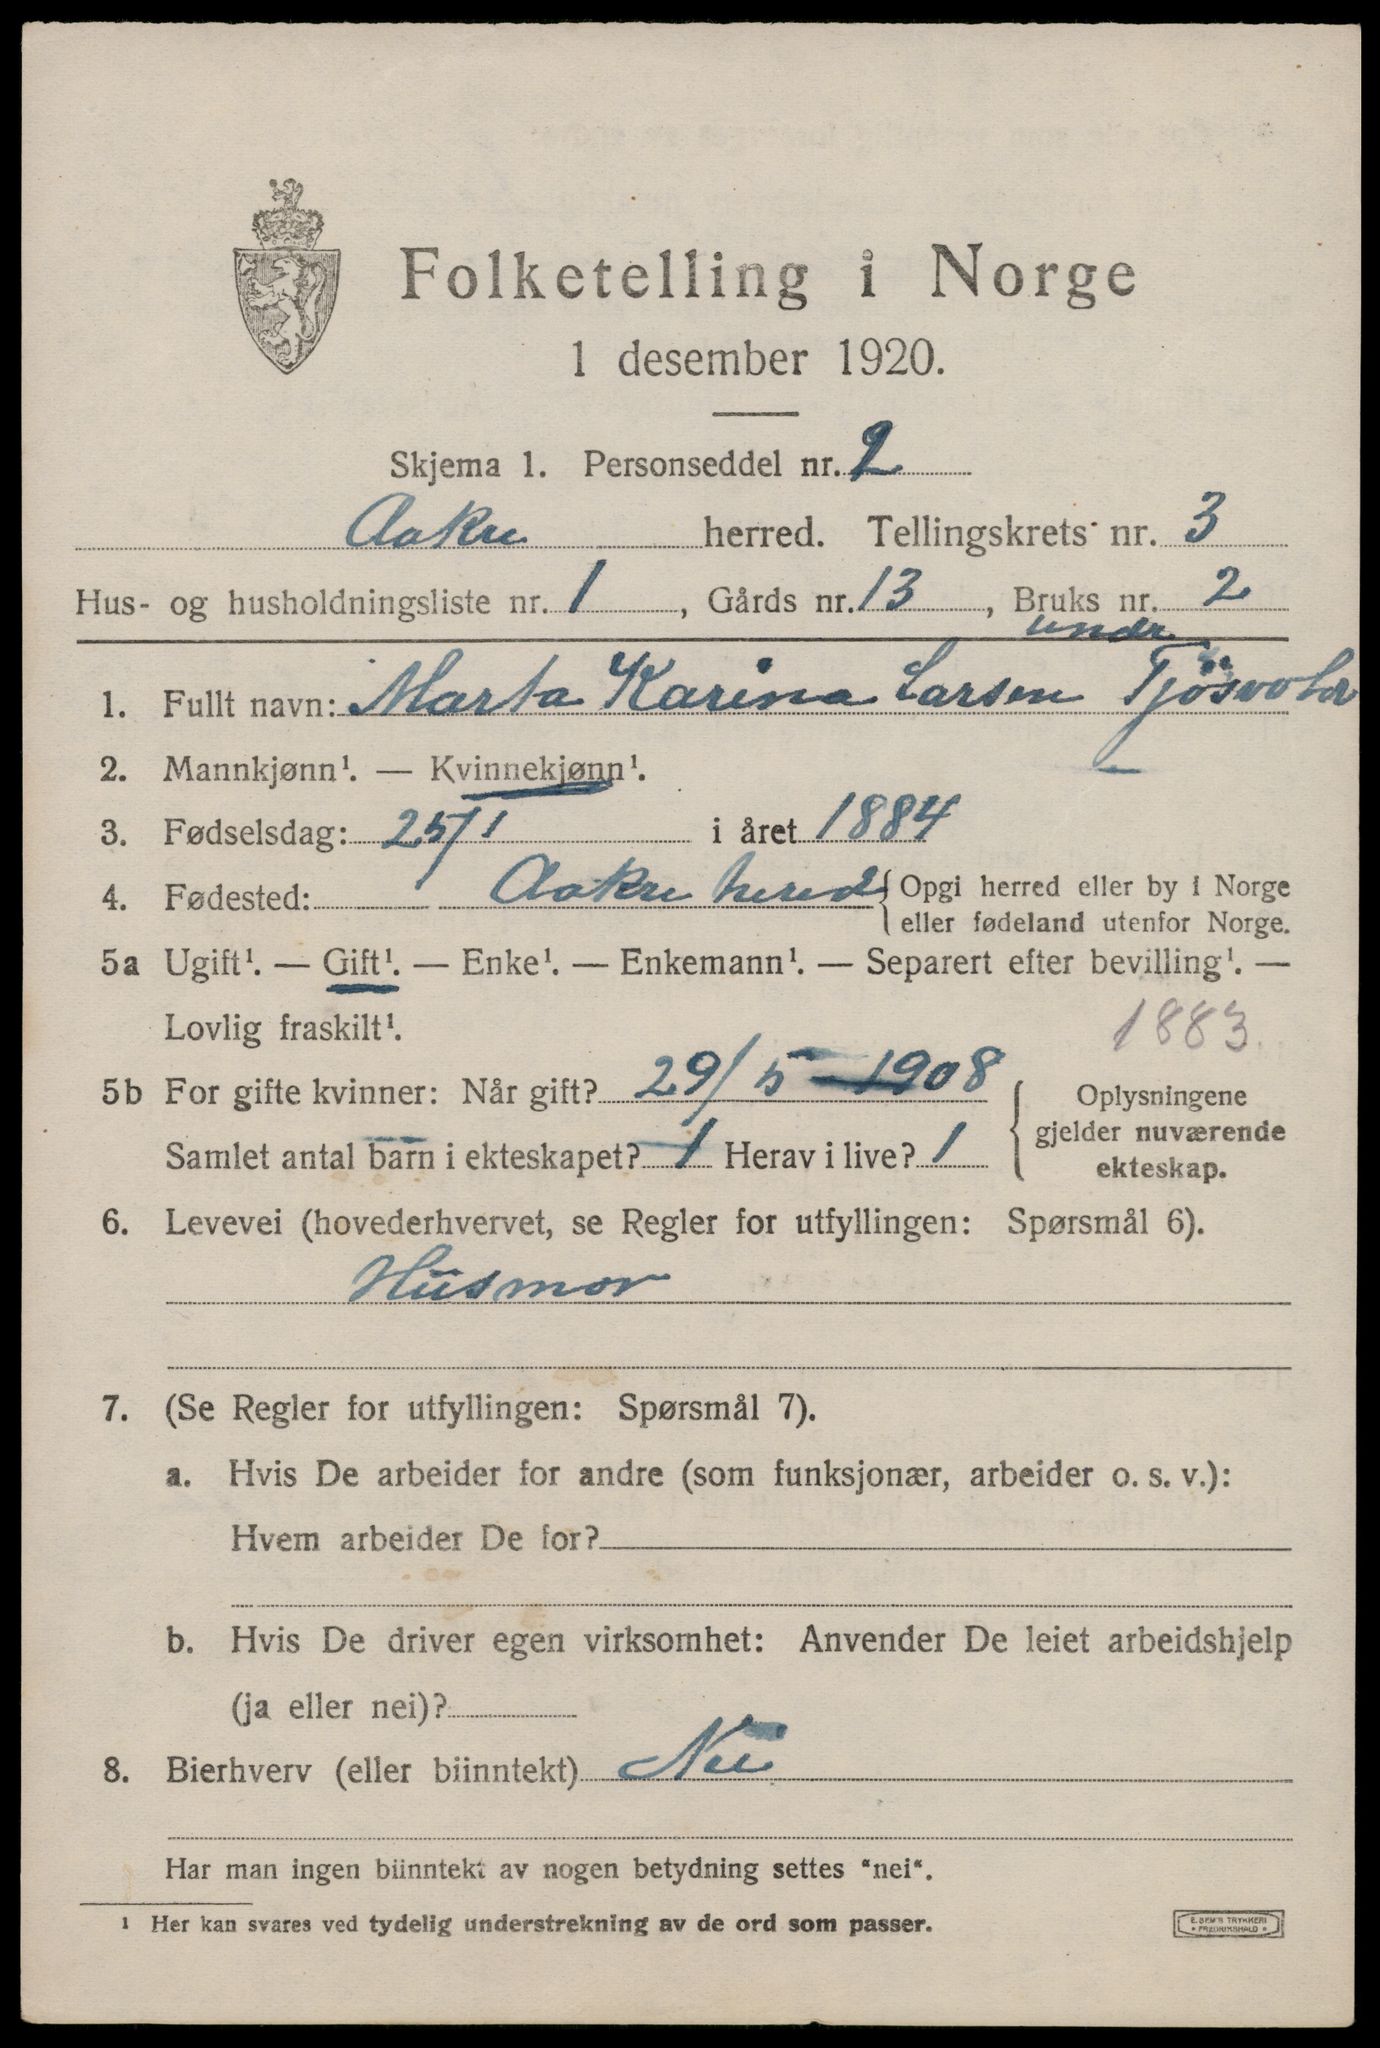 Folketelling i Norge
1 desember 1920.
Skjema 1. Personseddel nr. 2
Aakre herred. Tellingskrets nr. 3
Hus- og husholdningsliste nr. 1, Gårds nr. 13, Bruks nr. 2
undr
1. Fullt navn: Marta Karina Larsen
2. Mannkjønn¹. — Kvinnekjønn¹.
3. Fødselsdag: 25/1 i året 1884
4. Fødested: Aakre hered { Opgi herred eller by i Norge
eller fødeland utenfor Norge.
5a Ugift¹. — Gift¹. — Enke¹. — Enkemann¹. — Separert efter bevilling¹. —
Lovlig fraskilt¹.
1883
5b For gifte kvinner: Når gift? 29/5 - 1908
Samlet antal barn i ekteskapet? 1 Herav i live? 1
{ Oplysningene
gjelder nuværende
ekteskap.
6. Levevei (hovederhvervet, se Regler for utfyllingen: Spørsmål 6).
Husmor
7. (Se Regler for utfyllingen: Spørsmål 7).
a. Hvis De arbeider for andre (som funksjonær, arbeider o. s. v.):
Hvem arbeider De for?
b. Hvis De driver egen virksomhet: Anvender De leiet arbeidshjelp
(ja eller nei)?
8. Bierhverv (eller biinntekt) Nei
Har man ingen biinntekt av nogen betydning settes "nei".
¹ Her kan svares ved tydelig understrekning av de ord som passer.
E. SEM'S TRYKKERI
• FREDRIKSHALD •